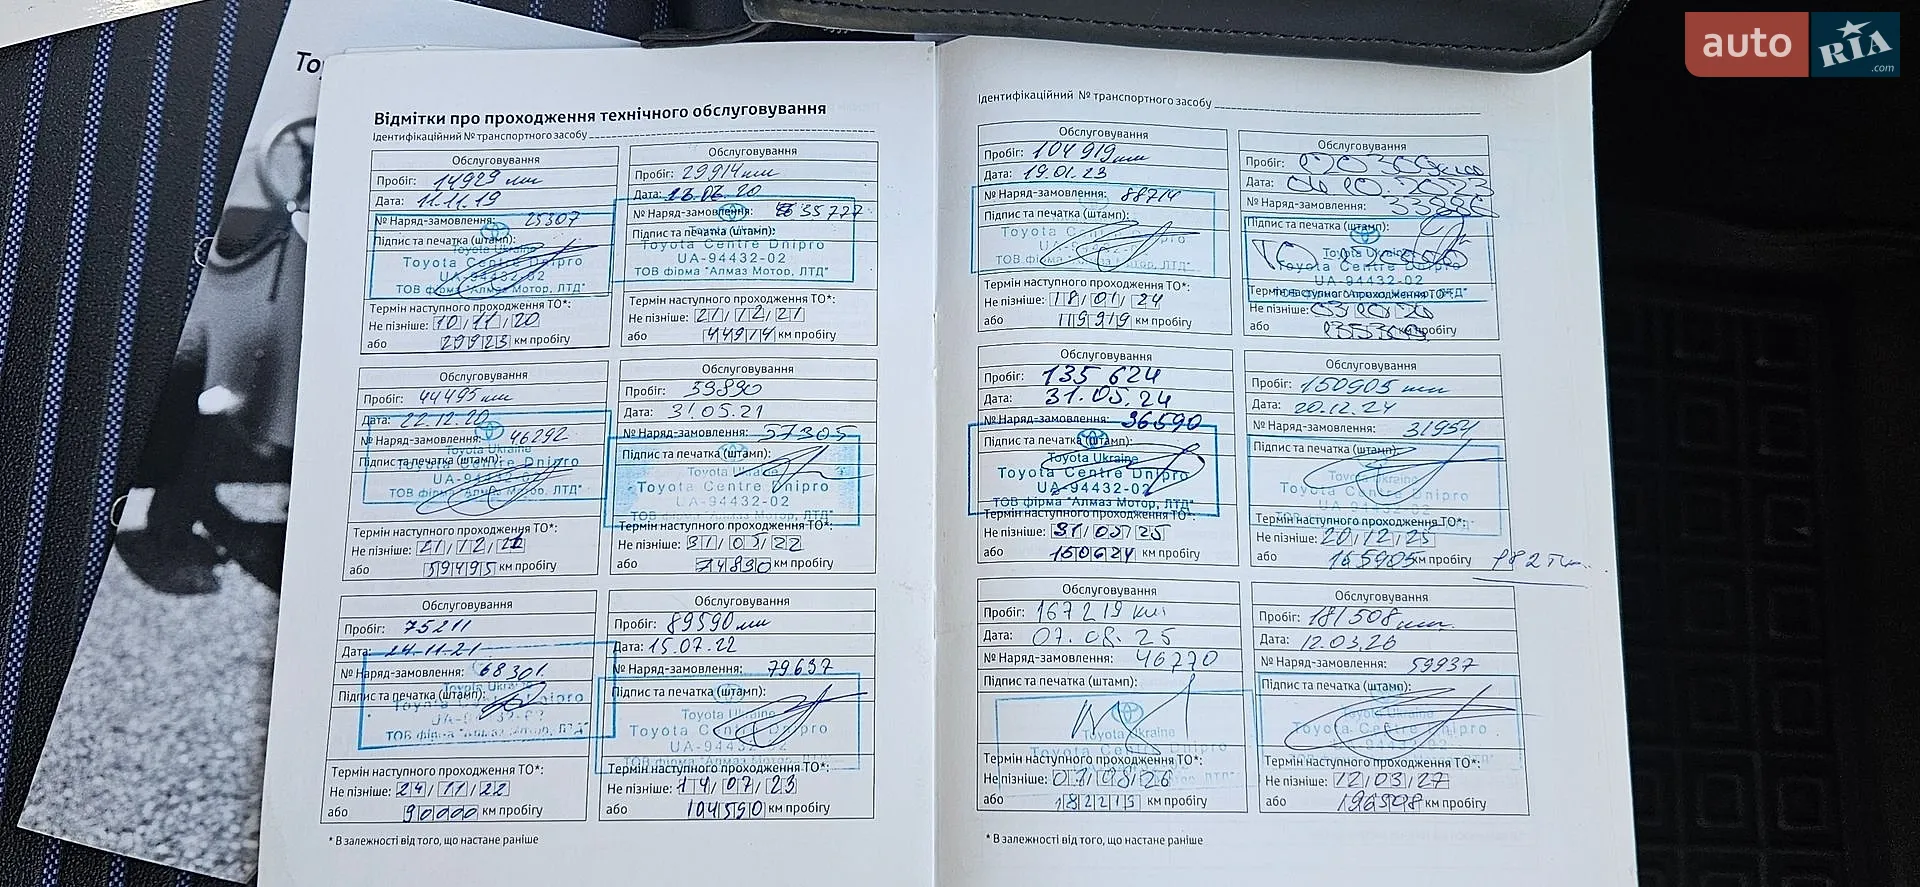 auto
RIA
.com
Toy
Відмітки про проходження технічного обслуговування
Ідентифікаційний № транспортного засобу
Обслуговування
Пробіг: 14929 км
Дата: 11.11.19
№ Наряд-замовлення: 25307
Підпис та печатка (штамп):
Toyota Ukraine
Toyota Centre Dnipro
UA-94432-02
ТОВ фірма "Алмаз Мотор, ЛТД"
Термін наступного проходження ТО*:
Не пізніше: 10/11/20
або 29923 км пробігу
Обслуговування
Пробіг: 29914 км
Дата:
№ Наряд-замовлення: 35777
Підпис та печатка (штамп):
Toyota Centre Dnipro
UA-94432-02
ТОВ фірма "Алмаз Мотор, ЛТД"
Термін наступного проходження ТО*:
Не пізніше: 21/12/21
або 44914 км пробігу
Обслуговування
Пробіг: 44495 км
Дата: 22.12.20
№ Наряд-замовлення: 46292
Підпис та печатка (штамп):
Toyota Ukraine
Toyota Centre Dnipro
UA-94432-02
ТОВ фірма "Алмаз Мотор, ЛТД"
Термін наступного проходження ТО*:
Не пізніше: 21/12/
або 59495 км пробігу
Обслуговування
Пробіг:
Дата: 31.05.21
№ Наряд-замовлення: 57305
Підпис та печатка (штамп):
Toyota Ukraine
Toyota Centre Dnipro
UA-94432-02
ТОВ фірма "Алмаз Мотор, ЛТД"
Термін наступного проходження ТО*:
Не пізніше: 31/05/22
або км пробігу
Обслуговування
Пробіг: 75211
Дата: 24.11.21
№ Наряд-замовлення: 68301
Підпис та печатка (штамп):
Toyota Ukraine
Toyota Centre Dnipro
UA-94432-02
ТОВ фірма "Алмаз Мотор, ЛТД"
Термін наступного проходження ТО*:
Не пізніше: 24/11/22
або 90000 км пробігу
Обслуговування
Пробіг: 89590 км
Дата: 15.07.22
№ Наряд-замовлення: 79637
Підпис та печатка (штамп):
Toyota Ukraine
Toyota Centre Dnipro
UA-94432-02
ТОВ фірма "Алмаз Мотор, ЛТД"
Термін наступного проходження ТО*:
Не пізніше: 14/07/23
або 104590 км пробігу
* В залежності від того, що настане раніше
Ідентифікаційний № транспортного засобу
Обслуговування
Пробіг: 104919 км
Дата: 19.01.23
№ Наряд-замовлення: 88714
Підпис та печатка (штамп):
Toyota Centre Dnipro
UA-94432-02
ТОВ фірма "Алмаз Мотор, ЛТД"
Термін наступного проходження ТО*:
Не пізніше: 18/01/24
або 119919 км пробігу
Обслуговування
Пробіг:
Дата:
№ Наряд-замовлення:
Підпис та печатка (штамп):
Toyota Ukraine
Toyota Centre Dnipro
UA-94432-02
Термін наступного проходження ТО*:
Не пізніше:
або км пробігу
Обслуговування
Пробіг: 135624
Дата: 31.05.24
№ Наряд-замовлення: 36590
Підпис та печатка (штамп):
Toyota Ukraine
Toyota Centre Dnipro
UA-94432-02
ТОВ фірма "Алмаз Мотор, ЛТД"
Термін наступного проходження ТО*:
Не пізніше: 31/05/25
або 150624 км пробігу
Обслуговування
Пробіг: 150905 км
Дата: 20.12.24
№ Наряд-замовлення: 31954
Підпис та печатка (штамп):
Toyota Ukraine
Toyota Centre Dnipro
Термін наступного проходження ТО*:
Не пізніше: 20/12/25
або 165905 км пробігу
Обслуговування
Пробіг: 167219 км
Дата: 07.08.25
№ Наряд-замовлення: 46770
Підпис та печатка (штамп):
Toyota Ukraine
Toyota Centre Dnipro
Термін наступного проходження ТО*:
Не пізніше: 07/08/26
або 182219 км пробігу
Обслуговування
Пробіг: 181508 км
Дата: 12.03.26
№ Наряд-замовлення: 59937
Підпис та печатка (штамп):
Toyota Ukraine
Toyota Centre Dnipro
Термін наступного проходження ТО*:
Не пізніше: 12/03/27
або 196508 км пробігу
* В залежності від того, що настане раніше